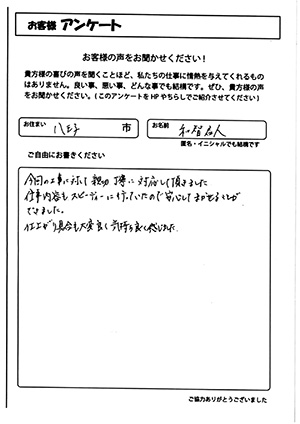 お客様 アンケート
お客様の声をお聞かせください！
貴方様の喜びの声を聞くことほど、私たちの仕事に情熱を与えてくれるもの
はありません。良い事、悪い事、どんな事でも結構です。ぜひ、貴方様の声
をお聞かせください。(このアンケートをHPやちらしでご紹介させてください)
お住まい 八王子 市 お名前 匿名人
匿名・イニシャルでも結構です
ご自由にお書きください
今回の工事に対して親切丁寧に対応して頂きました
仕事内容もスピーディーに行っていたので安心してまかせることが
できました。
仕上がり具合も大変良く気持ち良く感じました。
ご協力ありがとうございました